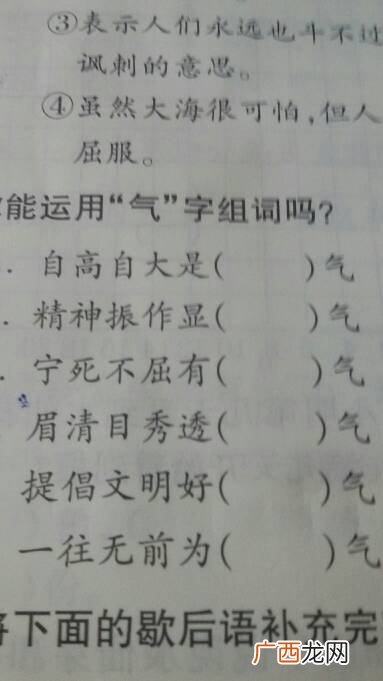 ③表示人们永远也斗不过
讽刺的意思。
④虽然大海很可怕,但人
屈服。
能运用“气”字组词吗?
. 自高自大是( )气
. 精神振作显( )气
. 宁死不屈有( )气
眉清目秀透( )气
提倡文明好( )气
一往无前为( )气
下面的歇后语补充完
广西龙网